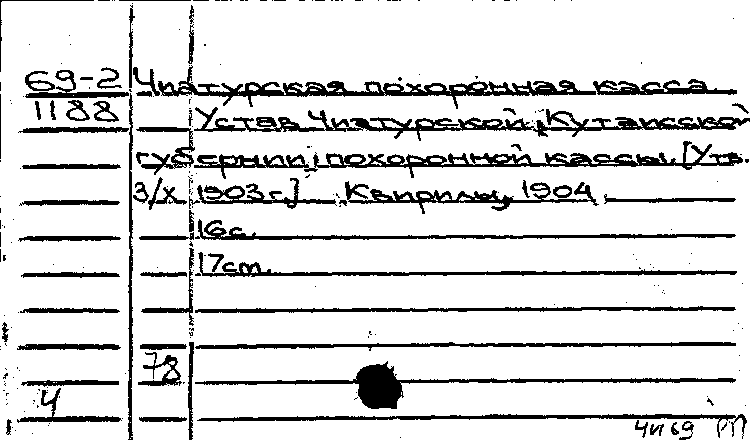 69-2 Чиатурская похоронная касса
1188 Устав Чиатурской, Кутаисской
губернии, похоронной кассы. [Утв.
3/X 1903 г.] Квирилы, 1904.
16с.
17см.
78
Ч
Чи69 РП